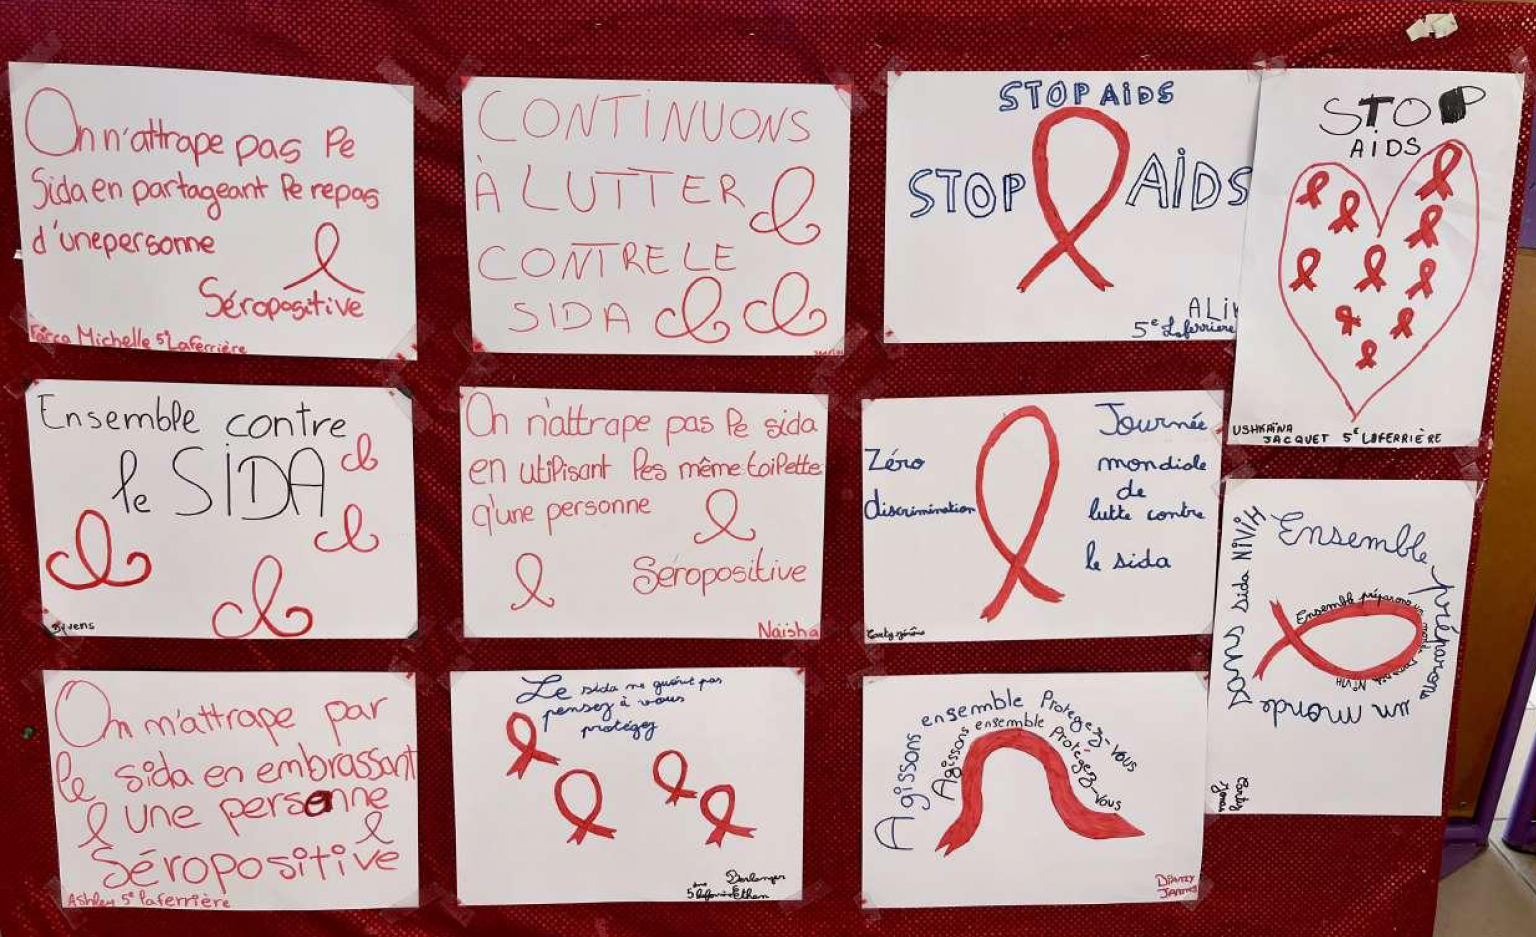 On n'attrape pas le
Sida en partageant le repas
d'une personne
Séropositive
Michelle 5e Laferrière
CONTINUONS
À LUTTER
CONTRE LE
SIDA
STOP AIDS
STOP AIDS
5e Laferrière
STOP
AIDS
USHKAÏNA
JACQUET 5e LAFERRIÈRE
Ensemble contre
le SIDA
On n'attrape pas le sida
en utilisant les même toilette
q'une personne
Séropositive
Naïsha
Zéro
discrimination
Journée
mondiale
de
lutte contre
le sida
Ensemble préparons
un monde
sans sida Ni VIH
Ensemble préparons un monde sans sida Ni VIH
On n'attrape par
le sida en embrassant
une personne
Séropositive
Ashley 5e laferrière
Le sida ne guérit pas
pensez à vous
protégez
Berlanger
5ème laferrière Ethan
Agissons ensemble Protégez-Vous
Agissons ensemble Protégez-Vous